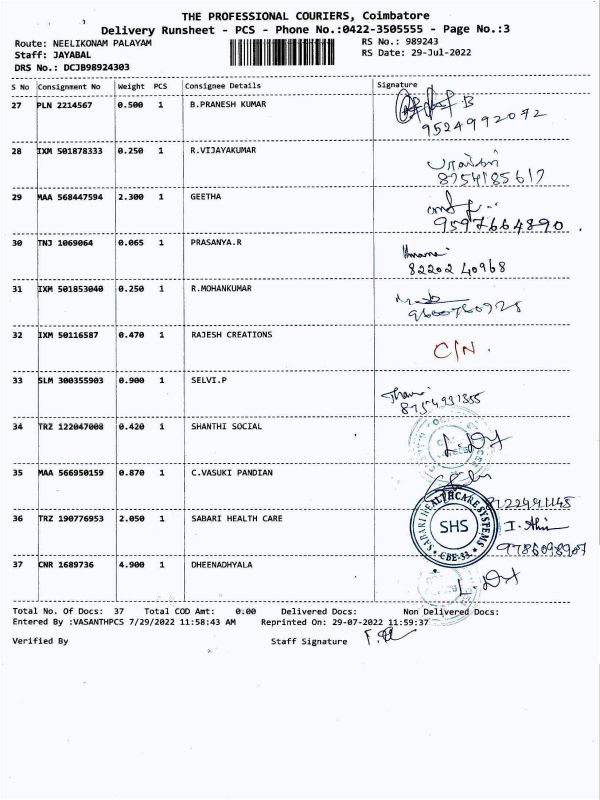 THE PROFESSIONAL COURIERS, Coimbatore
Delivery Runsheet - PCS - Phone No.:0422-3505555 - Page No.:3
Route: NEELIKONAM PALAYAM
RS No.: 989243
Staff: JAYABAL
RS Date: 29-Jul-2022
DRS No.: DCJB98924303
S No Consignment No Weight PCS Consignee Details Signature
27 PLN 2214567 0.500 1 B.PRANESH KUMAR
9524992072
28 IXM 501878333 0.250 1 R.VIJAYAKUMAR
8754185617
29 MAA 568447594 2.300 1 GEETHA
9597664890.
30 TNJ 1069064 0.065 1 PRASANYA.R
82202 40968
31 IXM 501853040 0.250 1 R.MOHANKUMAR
32 IXM 50116587 0.470 1 RAJESH CREATIONS
C/N.
33 SLM 300355903 0.900 1 SELVI.P
8754931355
34 TRZ 122047008 0.420 1 SHANTHI SOCIAL
35 MAA 566950159 0.870 1 C.VASUKI PANDIAN
8122491145
36 TRZ 190776953 2.050 1 SABARI HEALTH CARE
SABARI HEALTHCARE SYSTEMS
SHS
CBE-33.
37 CNR 1689736 4.900 1 DHEENADHYALA
Total No. Of Docs: 37 Total COD Amt: 0.00 Delivered Docs: Non Delivered Docs:
Entered By :VASANTHPCS 7/29/2022 11:58:43 AM Reprinted On: 29-07-2022 11:59:37
Verified By Staff Signature